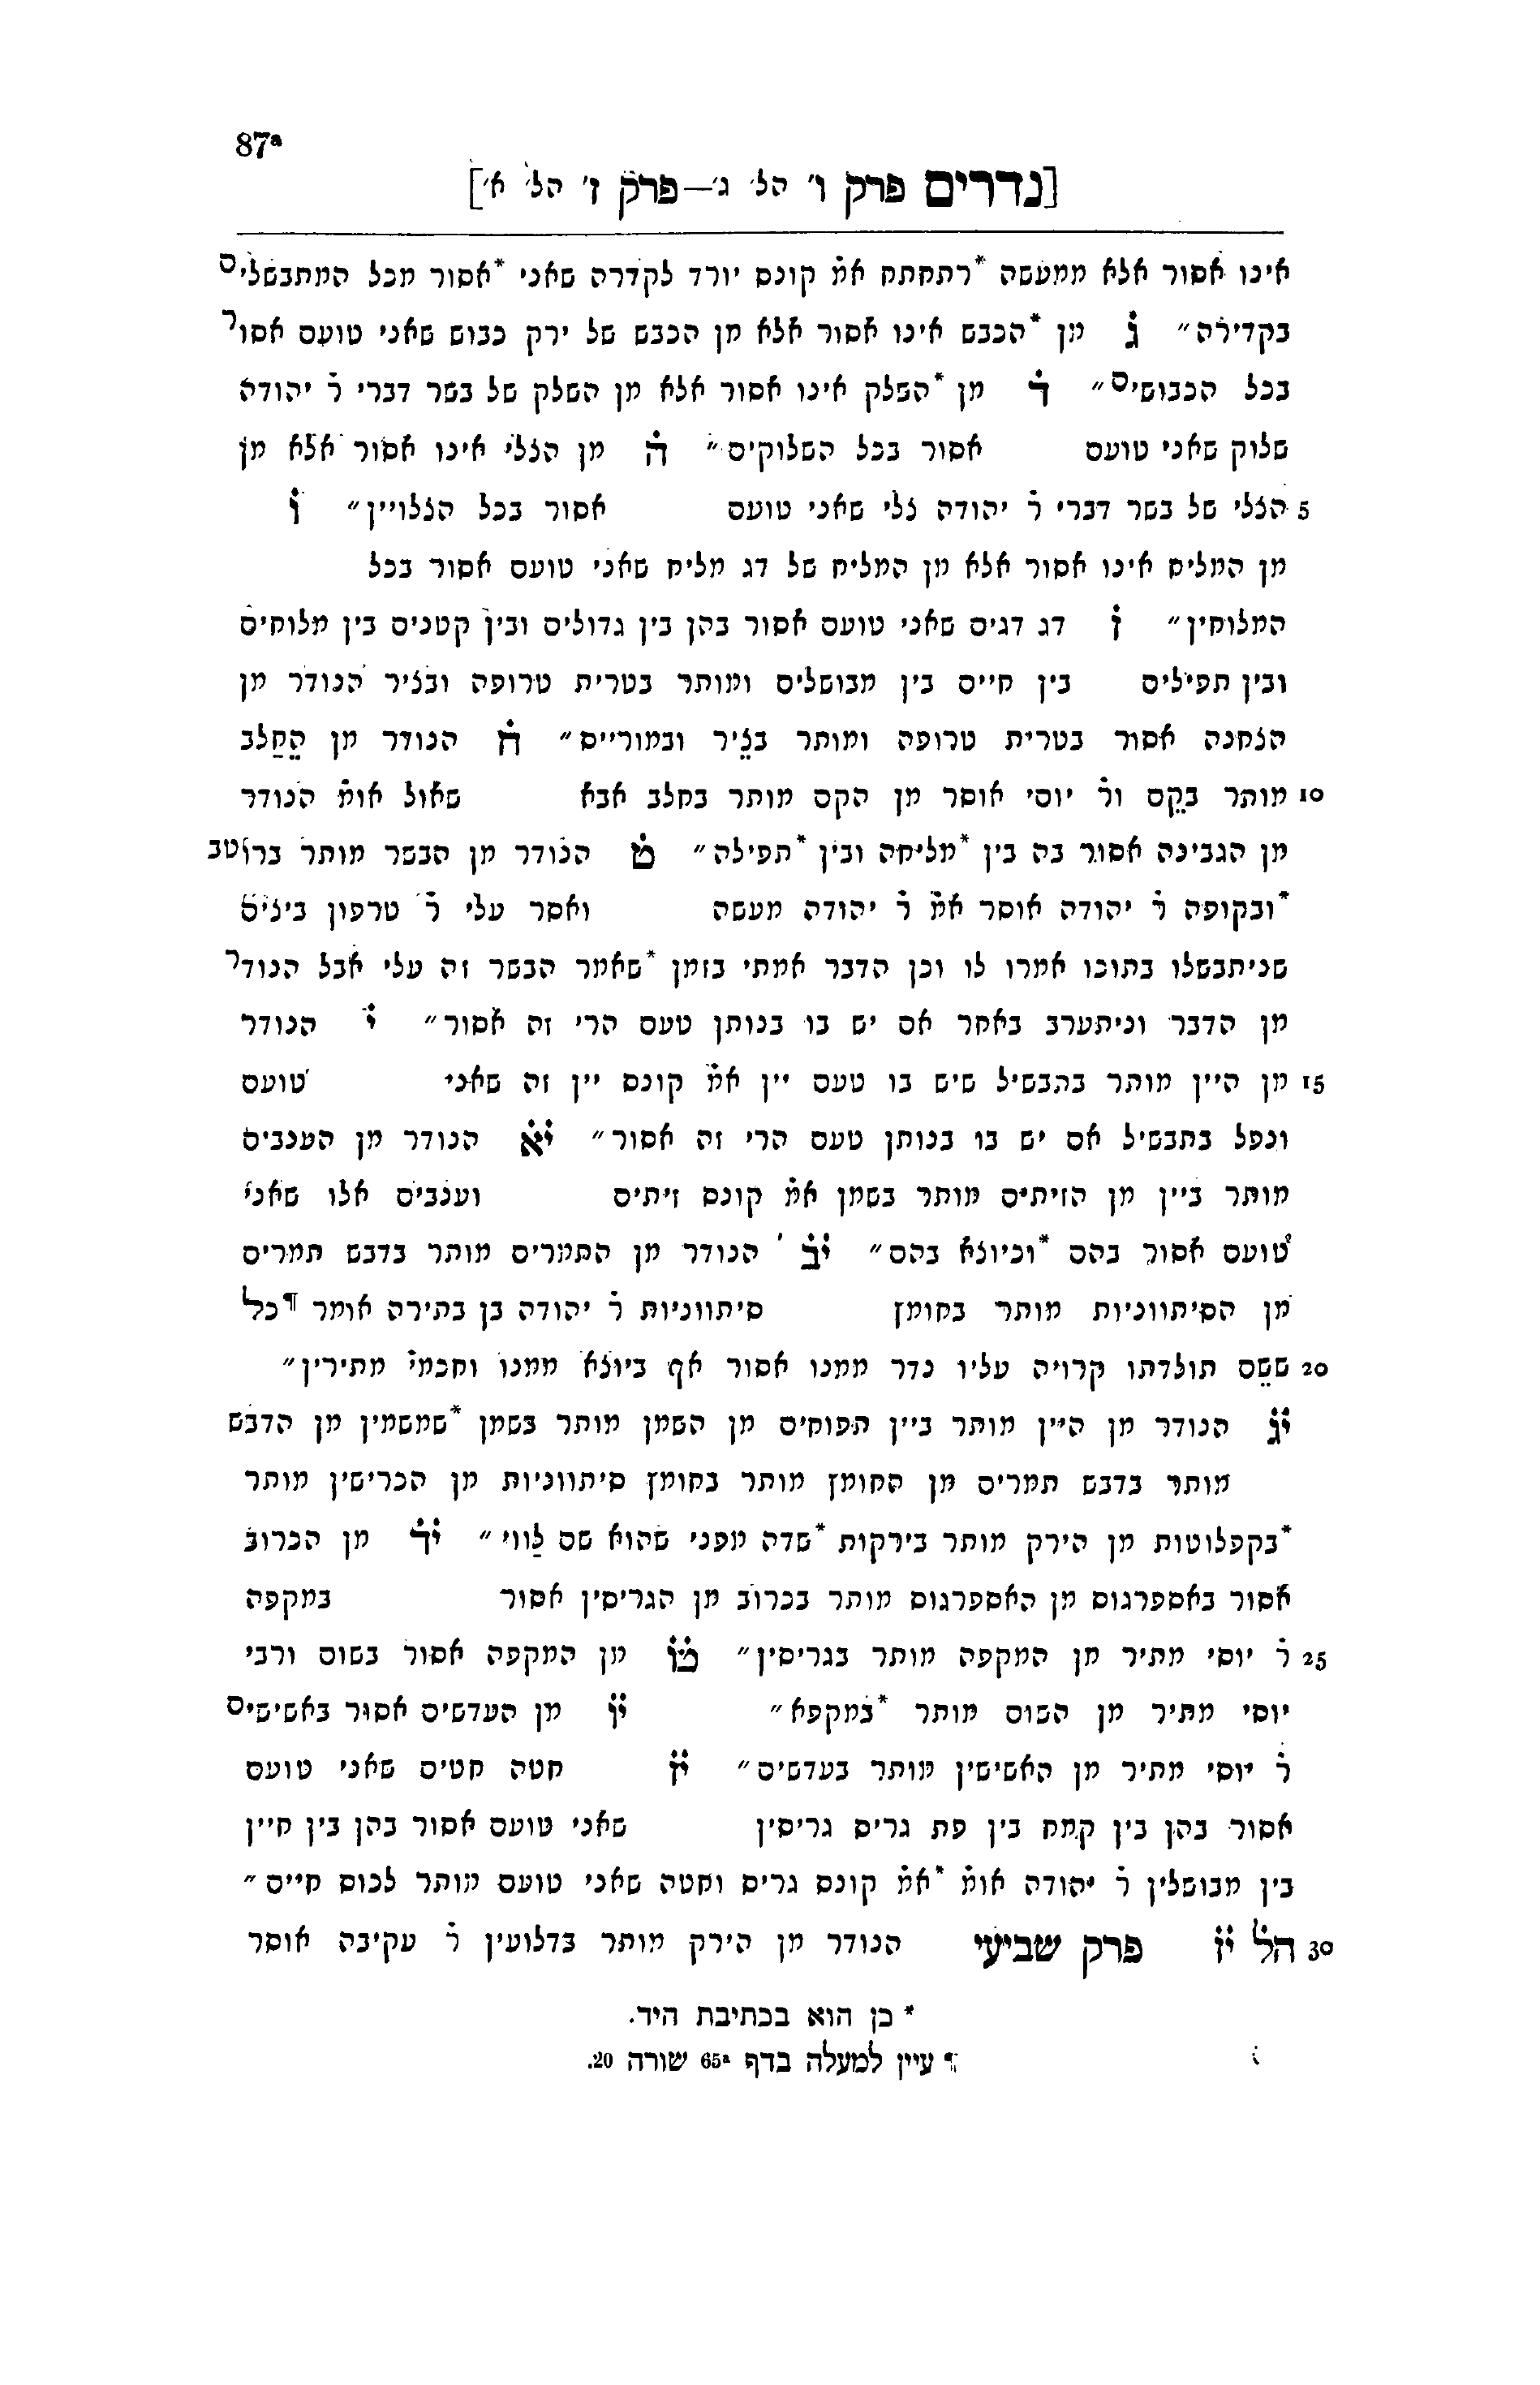 87a
[נדרים פרק ו' הל' ג'—פרק ז' הל' א']
אינו אסור אלא ממעשה *רתחתח אמ̇ קונס יורד לקדרה שאני *אסור מכל המתבשלים
בקדירה״ ג מן *הכבש אינו אסור אלא מן הכבש של ירק כבוש שאני טועם אסור
בכל הכבושים״ ד מן *השלק אינו אסור אלא מן השלק של בשר דברי ר̇ יהודה
שלוק שאני טועם אסור בכל השלוקים״ ה מן הצלי אינו אסור אלא מן
5 הצלי של בשר דברי ר̇ יהודה צלי שאני טועם אסור בכל הצלויין״ ו
מן המליח אינו אסור אלא מן המליח של דג מליח שאני טועם אסור בכל
המלוחין״ ז דג דגים שאני טועם אסור בהן בין גדולים ובין קטנים בין מלוחים
ובין תפילים בין חיים בין מבושלים ומותר בטרית טרופה ובציר הנודר מן
הצחנה אסור בטרית טרופה ומותר בציר ובמורייס״ ח הנודר מן החלב
10 מותר בקס ור̇ יוסי אוסר מן הקס מותר בחלב אבא שאול אומ̇ הנודר
מן הגבינה אסור בה בין *מליחה ובין *תפילה״ ט הנודר מן הבשר מותר ברוטב
*ובקופה ר̇ יהודה אוסר אמ̇ ר̇ יהודה מעשה ואסר עלי ר̇ טרפון ביצים
שניתבשלו בתוכו אמרו לו וכן הדבר אמתי בזמן *שאמר הבשר זה עלי אבל הנודר
מן הדבר וניתערב באחר אם יש בו בנותן טעם הרי זה אסור״ י הנודר
15 מן היין מותר בתבשיל שיש בו טעם יין אמ̇ קונס יין זה שאני טועם
ונפל בתבשיל אם יש בו בנותן טעם הרי זה אסור״ יא הנודר מן הענבים
מותר ביין מן הזיתים מותר בשמן אמ̇ קונס זיתים וענבים אלו שאני
טועם אסור בהם *וכיוצא בהם״ יב הנודר מן התמרים מותר בדבש תמרים
מן הסיתווניות מותר בחומץ סיתווניות ר̇ יהודה בן בתירה אומר ¶כל
20 ששם תולדתו קרויה עליו נדר ממנו אסור אף ביוצא ממנו וחכמי̇ מתירין״
יג הנודר מן היין מותר ביין תפוחים מן השמן מותר בשמן *שמשמין מן הדבש
מותר בדבש תמרים מן החומץ מותר בחומץ סיתווניות מן הכרישין מותר
*בקפלוטות מן הירק מותר בירקות *שדה מפני שהוא שם לווי״ יד מן הכרוב
אסור באספרגוס מן האספרגוס מותר בכרוב מן הגריסין אסור במקפה
25 ר̇ יוסי מתיר מן המקפה מותר בגריסין״ טו מן המקפה אסור בשום ורבי
יוסי מתיר מן השום מותר *במקפא״ יו מן העדשים אסור באשישים
ר̇ יוסי מתיר מן האשישין מותר בעדשים״ יז חטה חטים שאני טועם
אסור בהן בין קמח בין פת גריס גריסין שאני טועם אסור בהן בין חיין
בין מבושלין ר̇ יהודה אומ̇ *אמ̇ קונס גריס וחטה שאני טועם מותר לכוס חיים״
30 הל̇ יז פרק שביעי הנודר מן הירק מותר בדלועין ר̇ עקיבה אוסר
* כן הוא בכתיבת היד.
¶ עיין למעלה בדף 65a שורה 20.